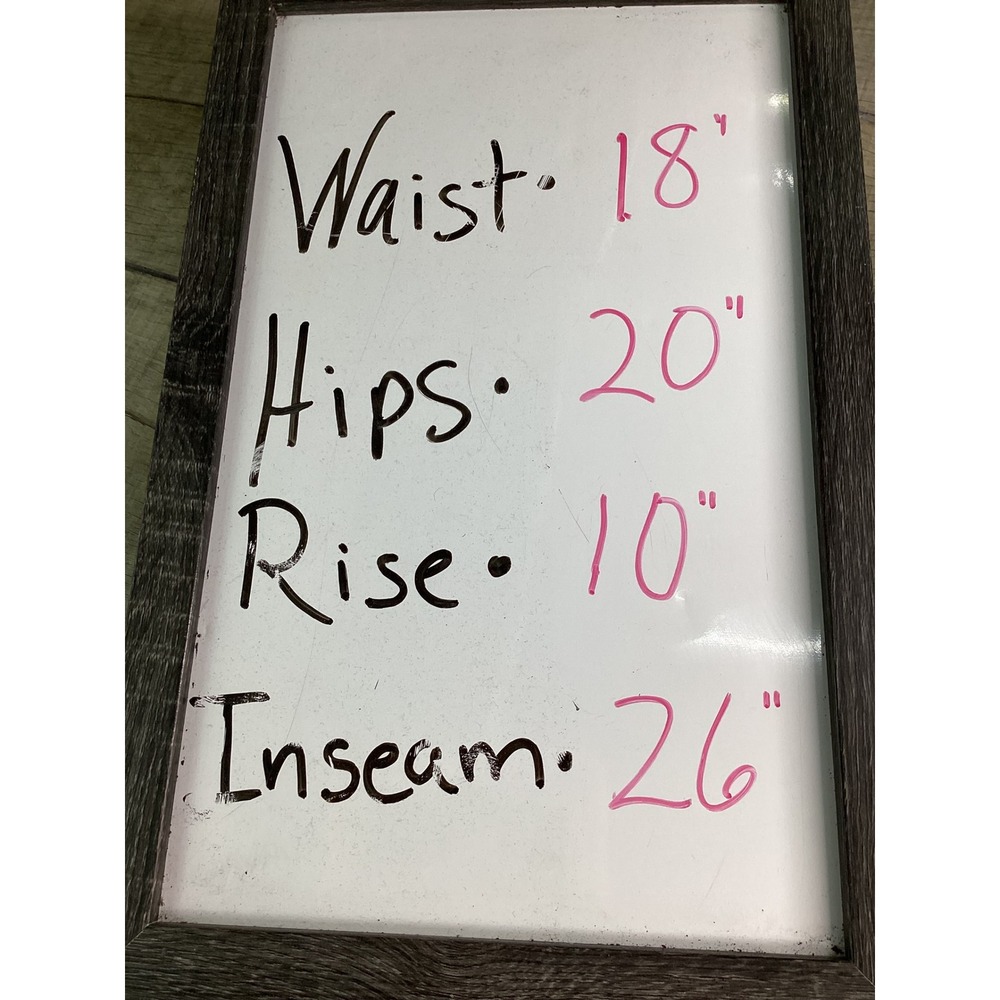 Waist. 18"
Hips. 20"
Rise. 10"
Inseam. 26"